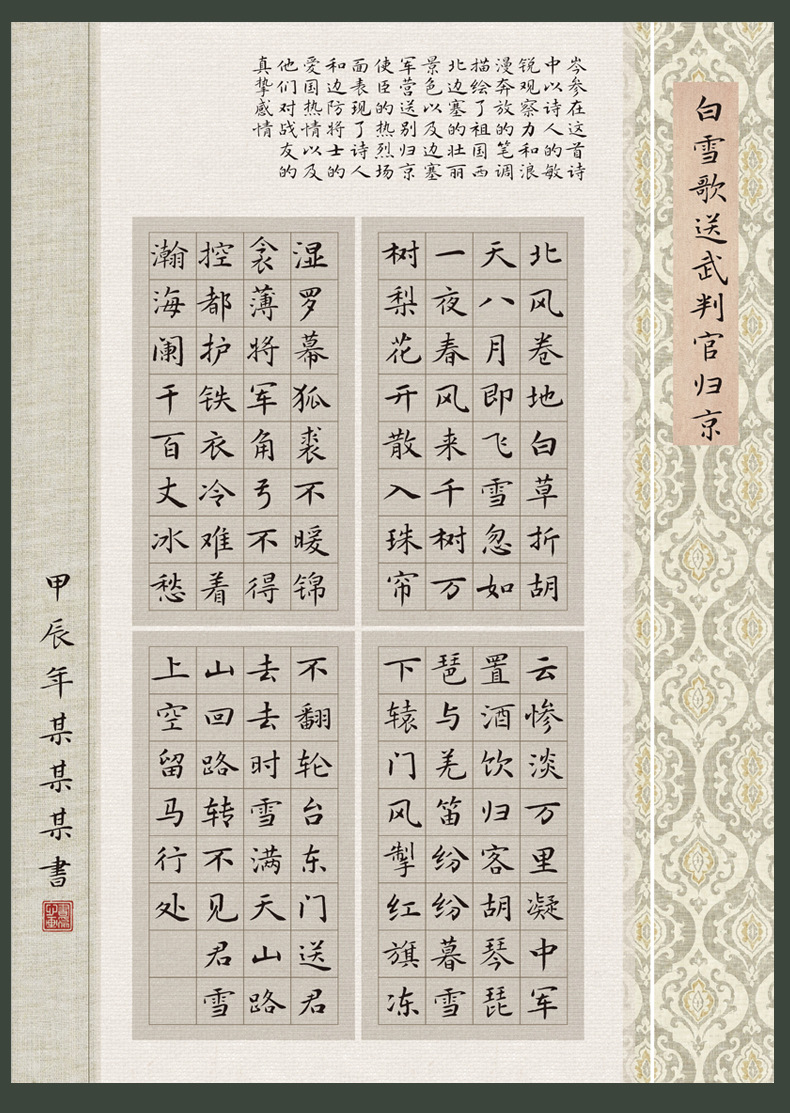 白雪歌送武判官归京
岑参在这首诗
中以诗人的敏
锐观察力和浪
漫奔放的笔调
描绘了祖国西
北边塞的壮丽
景色以及边塞
军营送别归京
使臣的热烈场
面表现了诗人
和边防将士的
爱国热情以及
他们对战友的
真挚感情
北风卷地白草折胡
天八月即飞雪忽如
一夜春风来千树万
树梨花开散入珠帘
湿罗幕狐裘不暖锦
衾薄将军角弓不得
控都护铁衣冷难着
瀚海阑干百丈冰愁
云惨淡万里凝中军
置酒饮归客胡琴琵
琶与羌笛纷纷暮雪
下辕门风掣红旗冻
不翻轮台东门送君
去去时雪满天山路
山回路转不见君雪
上空留马行处
甲辰年某某某書